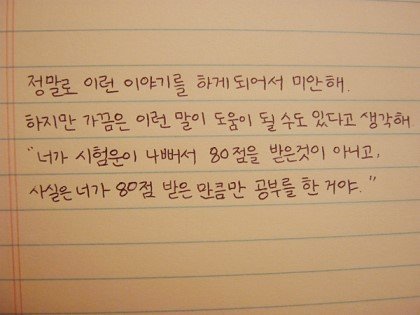 정말로 이런 이야기를 하게되어서 미안해.
하지만 가끔은 이런 말이 도움이 될 수도 있다고 생각해
"너가 시험운이 나뻐서 80점을 받은것이 아니고,
사실은 너가 80점 받은 만큼만 공부를 한 거야."